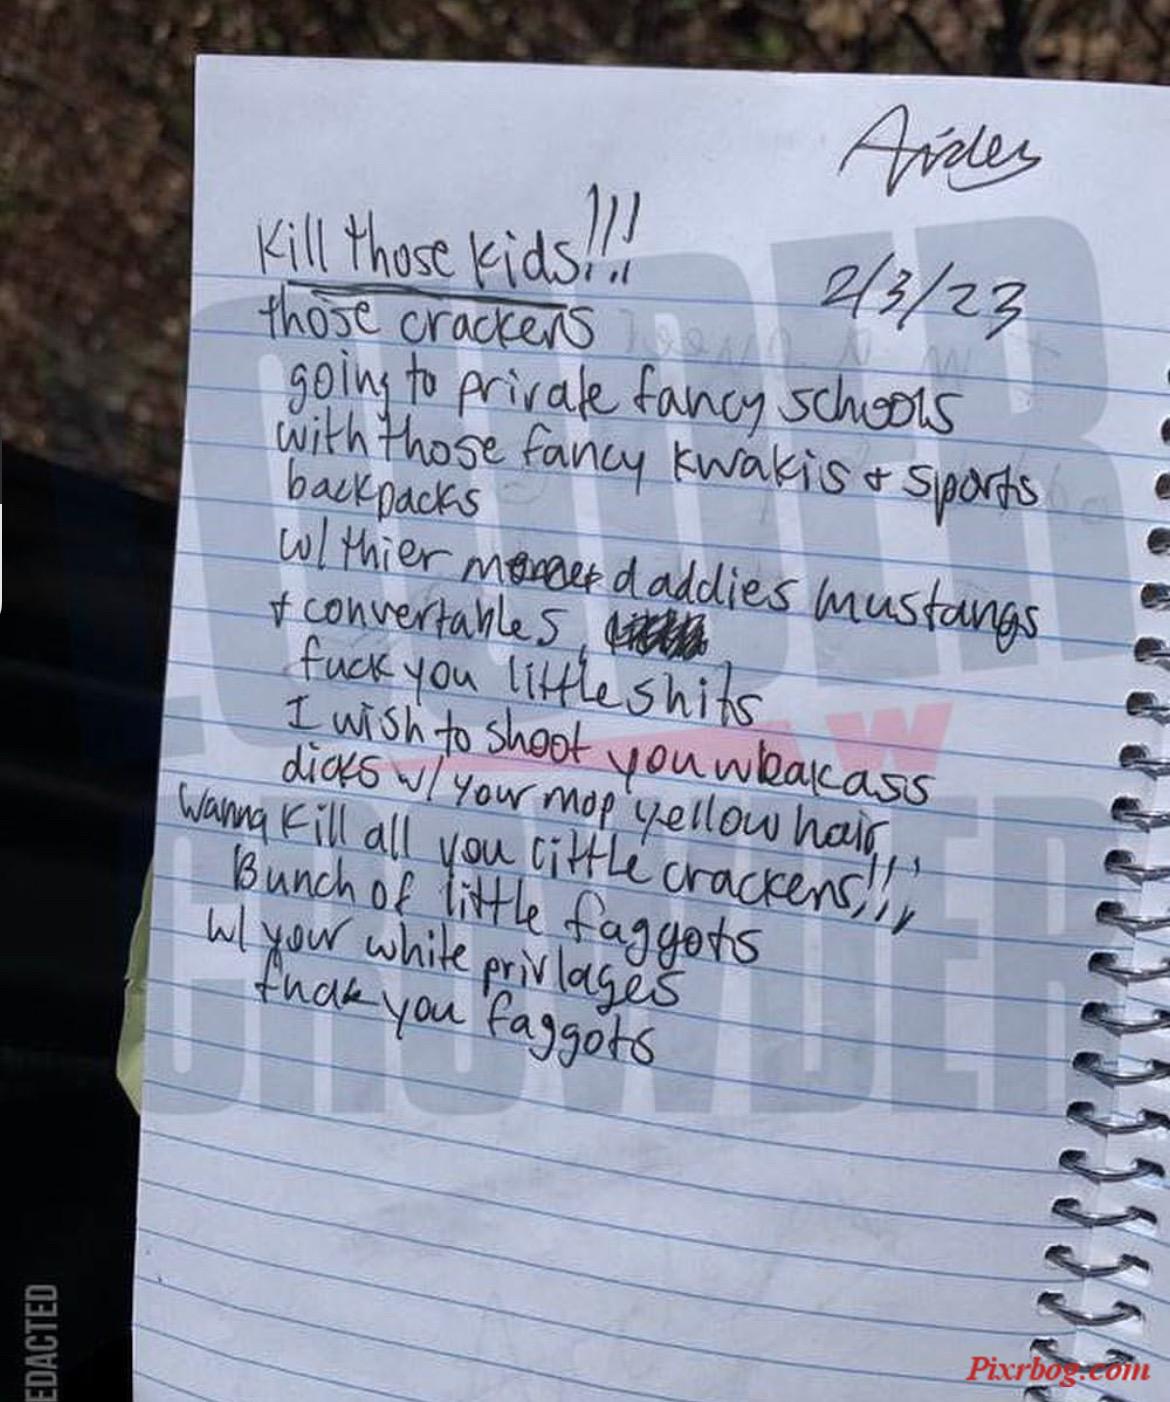 Aiden
Kill those kids!!!
2/3/23
those crackers
going to private fancy schools
with those fancy kwakis + sports
backpacks
w/ thier daddies mustangs
+ convertables
fuck you little shits
I wish to shoot you weakass
dicks w/ your mop yellow hair
wanna kill all you little crackers!!!
Bunch of little faggots
w/ your white privlages
fuck you faggots
LOUDER
W
CROWDER
EDACTED
Pixrbog.com